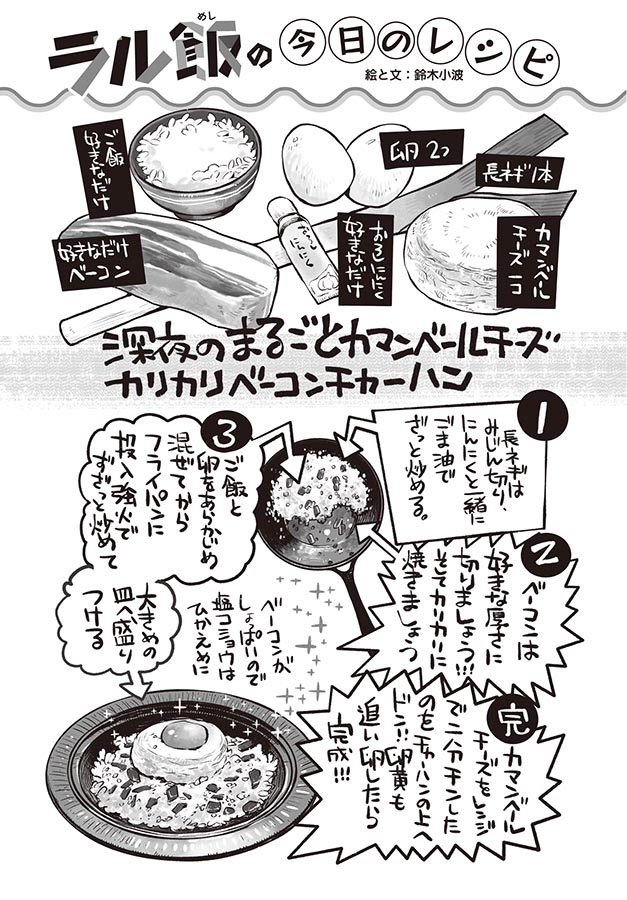 ラル飯の今日のレシピ
めし
絵と文：鈴木小波
ご飯
好きなだけ
卵2つ
長ネギ1本
好きなだけ
ベーコン
おろしにんにく
好きなだけ
カマンベール
チーズ一コ
深夜のまるごとカマンベールチーズ
カリカリベーコンチャーハン
1
長ネギは
みじん切り、
にんにくと一緒に
ごま油で
ざっと炒める。
2
ベーコンは
好きな厚さに
切りましょう!!!
そしてカリカリに
焼きましょう
3
ご飯と
卵をあらかじめ
混ぜてから
フライパンに
投入強火で
ずざっと炒めて
ベーコンが
しょっぱいので
塩コショウは
ひかえめに
大きめの
皿へ盛り
つける
完
カマンベール
チーズをレンジ
で二分チンした
のをチャーハンの上へ
ドン!!卵黄も
追い卵したら
完成!!!